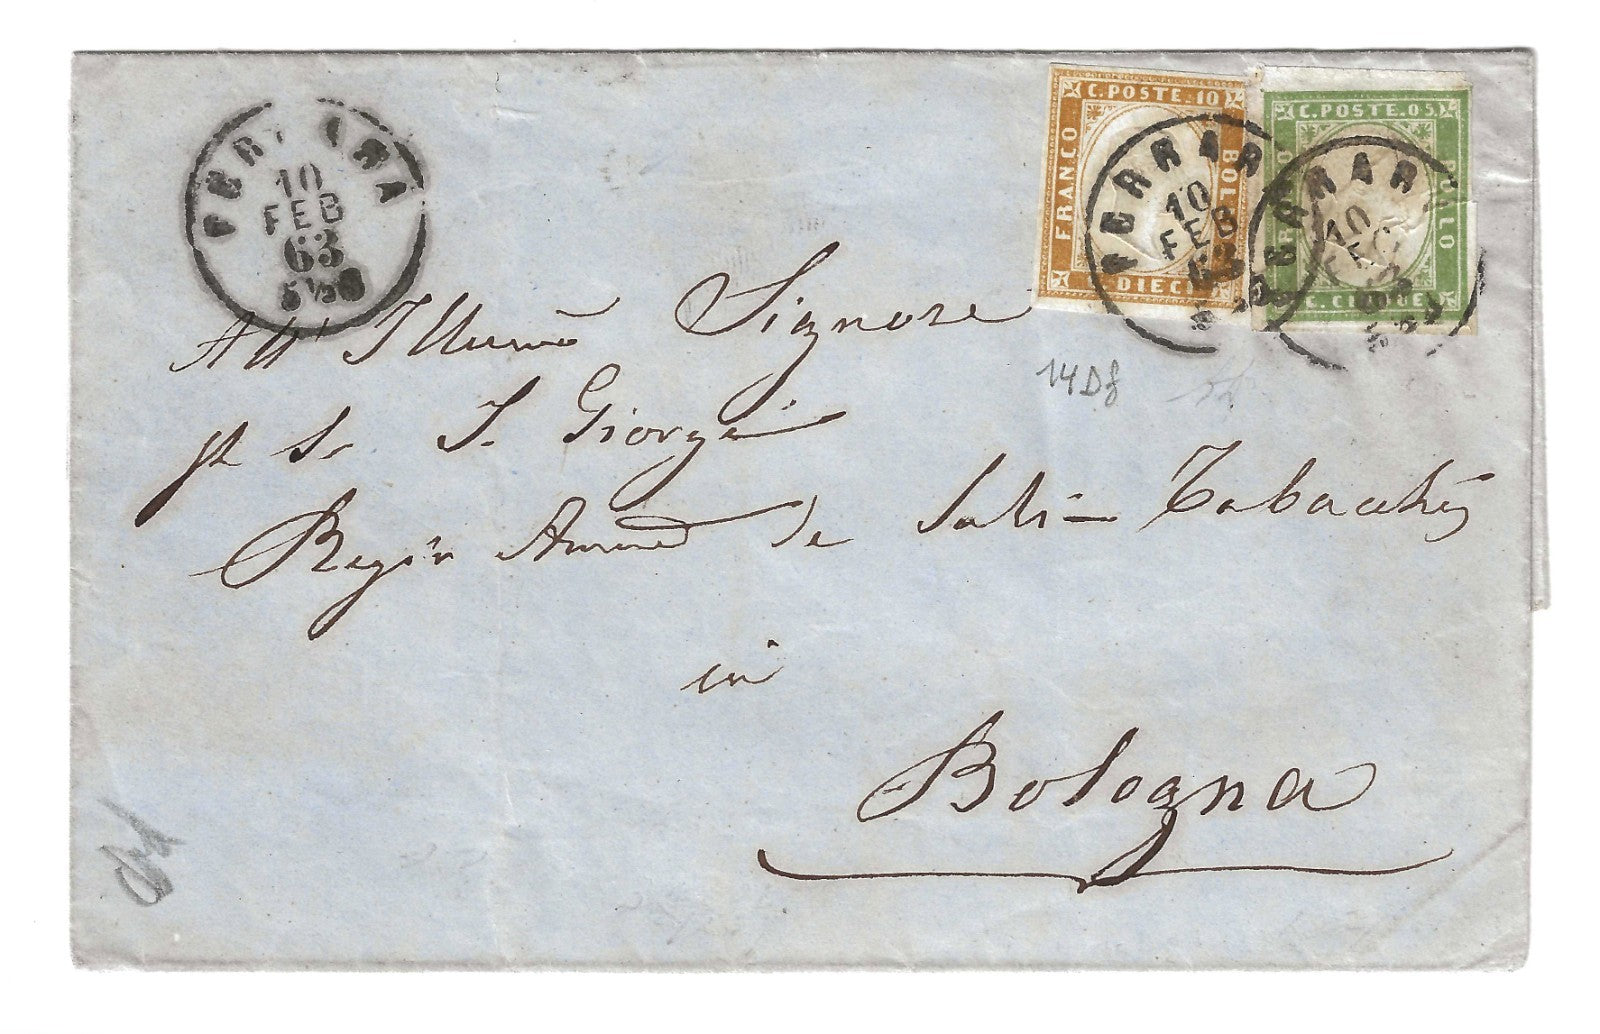 FERRARA
10
FEB
63
5½S
C. POSTE. 10
FRANCO
BOLLO
C. DIECI
FERRAR
10
FEB
63
C. POSTE. 05.
BOLLO
C. CINQUE
ERRAR
10
FE
All' Illumō Signore
S. Giorgi
de Sali Tabacchi
in
Bologna
14Df